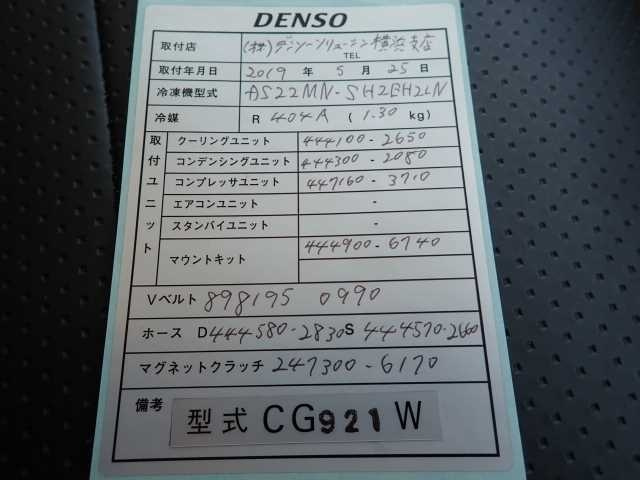 DENSO
取付店 (株)デンソーソリューション横浜支店
TEL
取付年月日 2019 年 5 月 25 日
冷凍機型式 AS22MN-SH2BH2LN
冷媒 R 404A ( 1.30 kg)
取付ユニット
クーリングユニット 444100-2650
コンデンシングユニット 444300-2080
コンプレッサユニット 447160-3710
エアコンユニット -
スタンバイユニット -
マウントキット 444900-6740
Vベルト 898195 0990
ホース D444580-2830S 444570-2660
マグネットクラッチ 247300-6170
備考 型式 CG921W